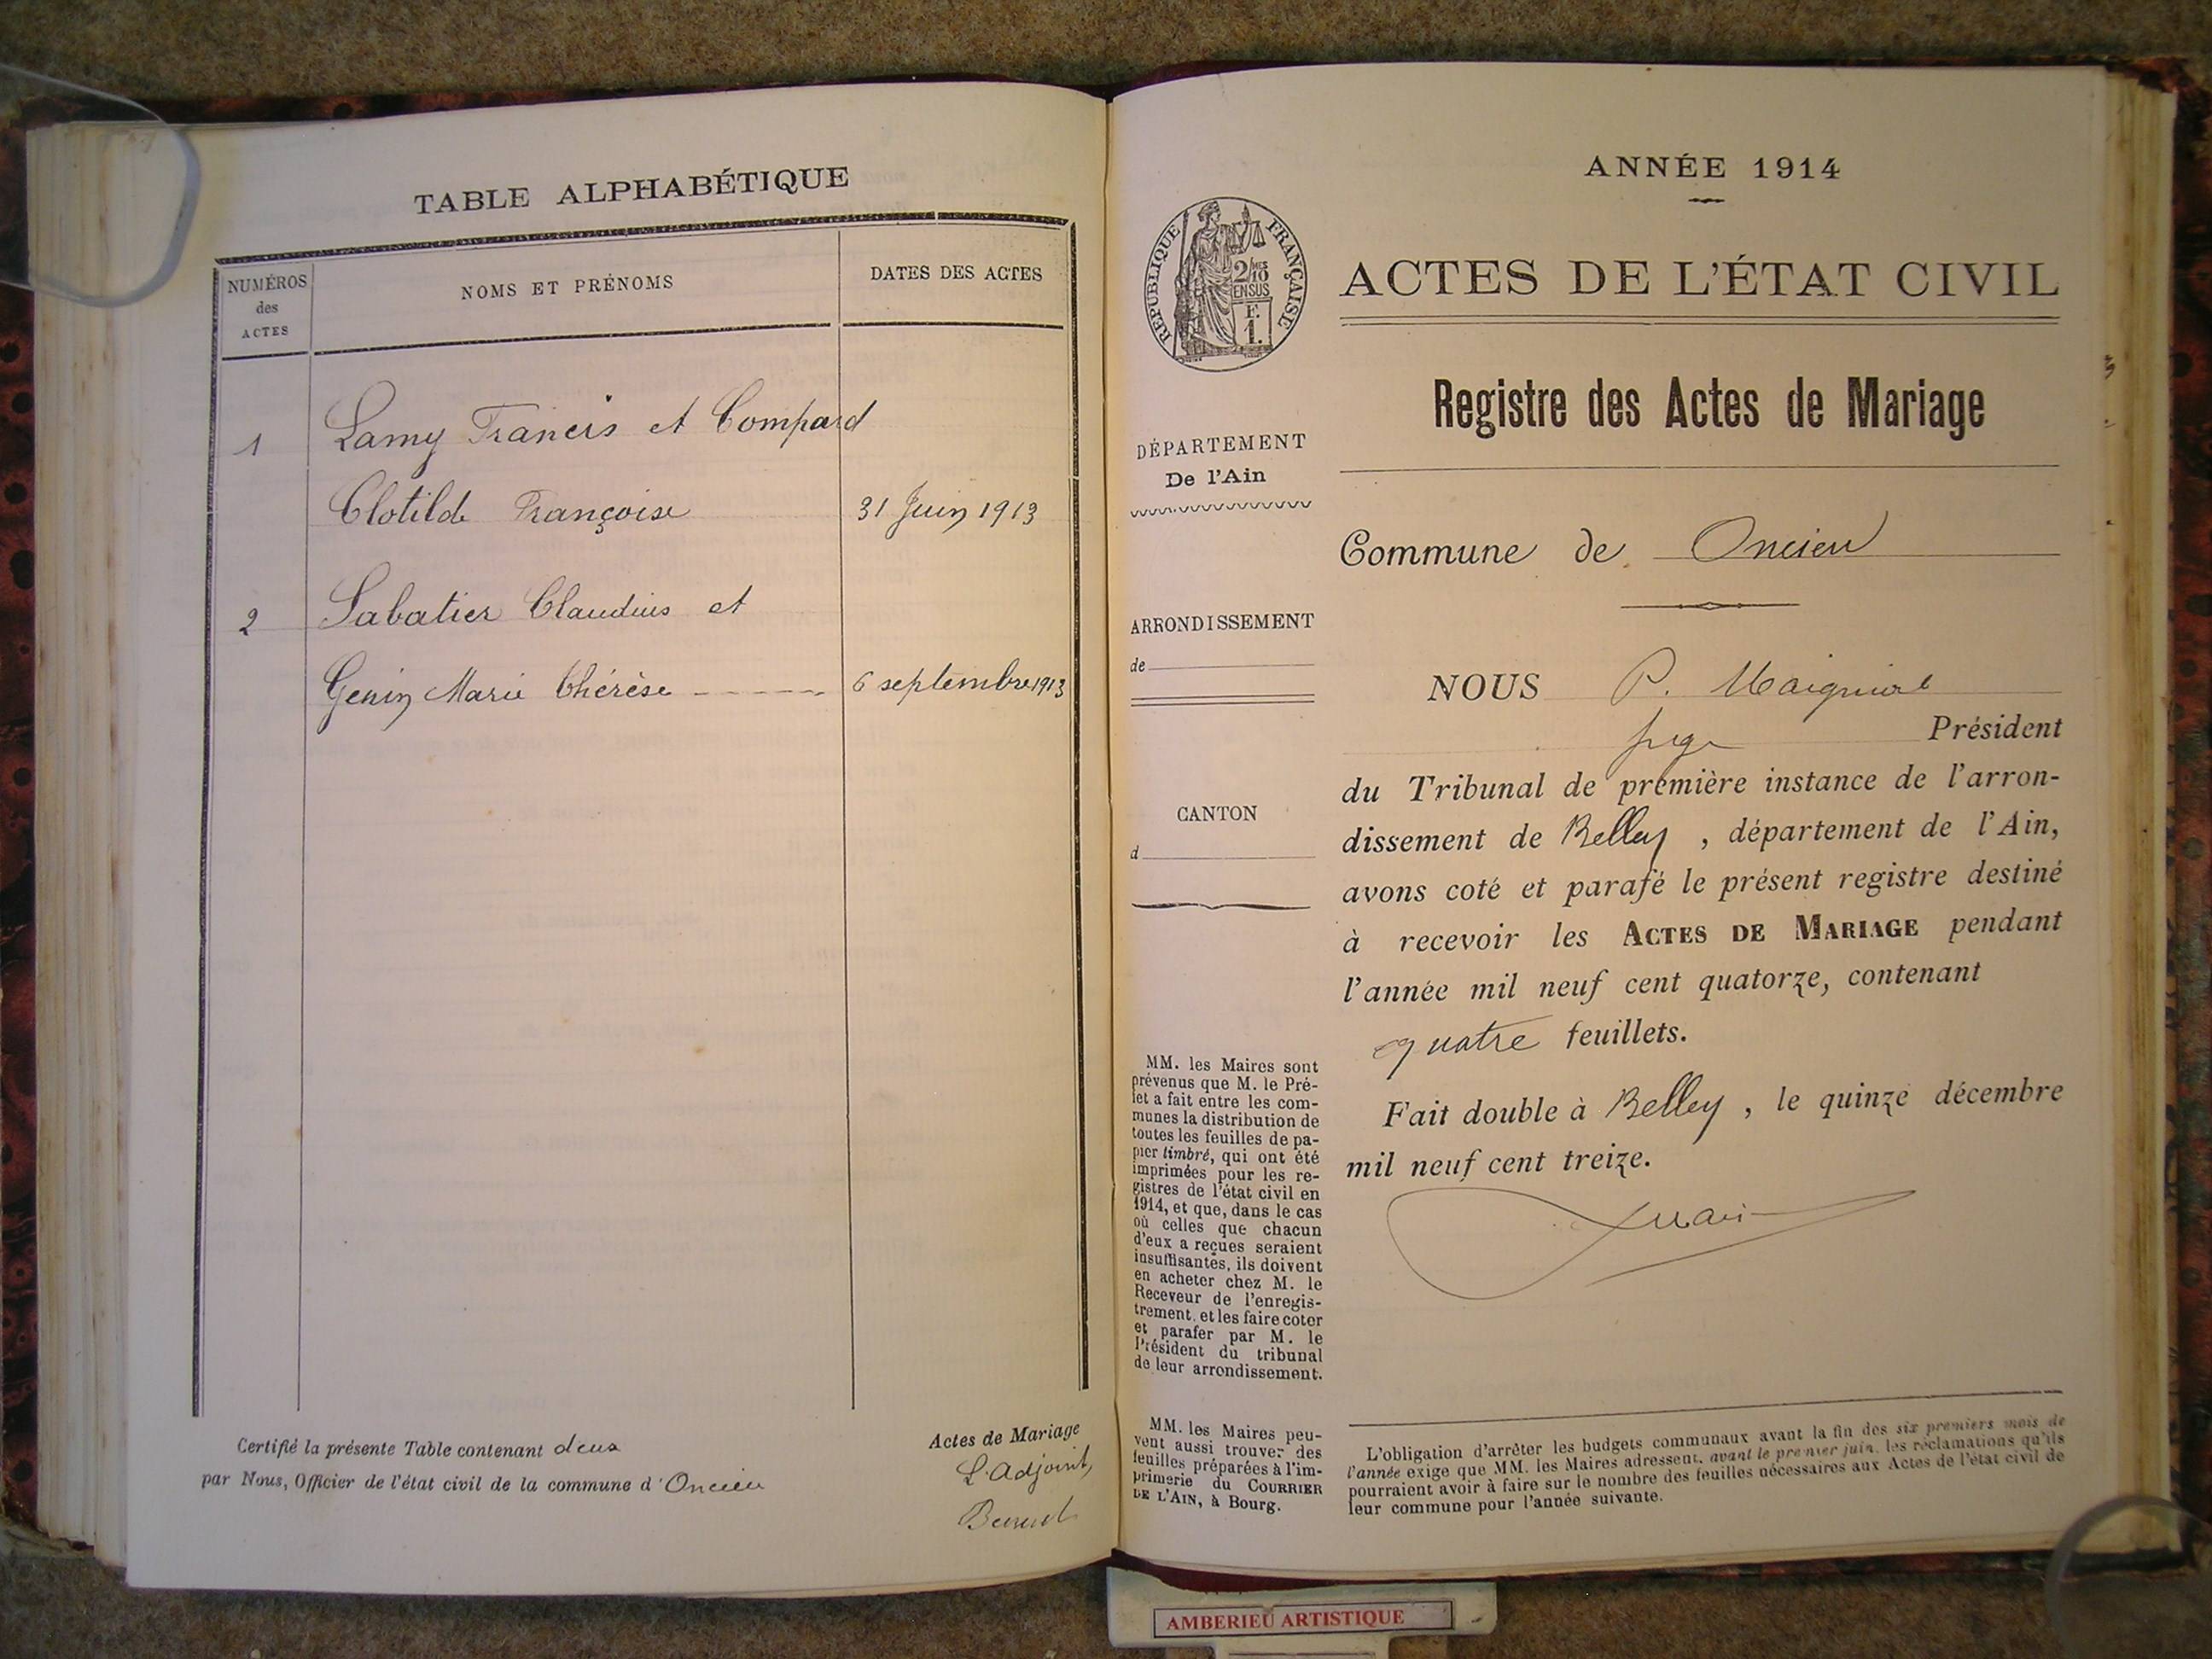 TABLE ALPHABÉTIQUE
NUMÉROS
des
ACTES
NOMS ET PRÉNOMS
DATES DES ACTES
1 Lamy Francis et Compard
Clotilde Françoise 31 Juin 1913
2 Sabatier Claudius et
Genin Marie Thérèse 6 septembre 1913
Certifié la présente Table contenant deux
par Nous, Officier de l'état civil de la commune d'Oncieu
Actes de Mariage
L'Adjoint,
ANNÉE 1914
RÉPUBLIQUE FRANÇAISE
2/10MES
EN SUS
F.
1.
ACTES DE L'ÉTAT CIVIL
Registre des Actes de Mariage
DÉPARTEMENT
De l'Ain
Commune de Oncieu
ARRONDISSEMENT
de
CANTON
d
NOUS P.
juge Président
du Tribunal de première instance de l'arron-
dissement de Belley, département de l'Ain,
avons coté et parafé le présent registre destiné
à recevoir les ACTES DE MARIAGE pendant
l'année mil neuf cent quatorze, contenant
quatre feuillets.
Fait double à Belley, le quinze décembre
mil neuf cent treize.
MM. les Maires sont
prévenus que M. le Pré-
fet a fait entre les com-
munes la distribution de
toutes les feuilles de pa-
pier timbré, qui ont été
imprimées pour les re-
gistres de l'état civil en
1914, et que, dans le cas
où celles que chacun
d'eux a reçues seraient
insuffisantes, ils doivent
en acheter chez M. le
Receveur de l'enregis-
trement, et les faire coter
et parafer par M. le
Président du tribunal
de leur arrondissement.
MM. les Maires peu-
vent aussi trouver des
feuilles préparées à l'im-
primerie du COURRIER
DE L'AIN, à Bourg.
L'obligation d'arrêter les budgets communaux avant la fin des six premiers mois de
l'année exige que MM. les Maires adressent, avant le premier juin, les réclamations qu'ils
pourraient avoir à faire sur le nombre des feuilles nécessaires aux Actes de l'état civil de
leur commune pour l'année suivante.
AMBERIEU ARTISTIQUE